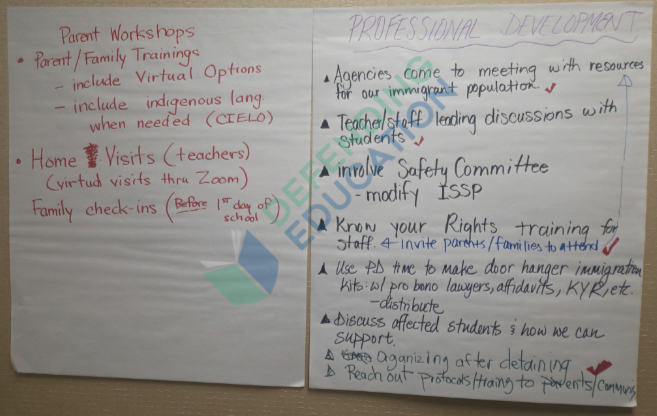 Parent Workshops
• Parent/Family Trainings
- include Virtual Options
- include indigenous lang.
when needed (CIELO)
• Home Visits (teachers)
(virtual visits thru Zoom)
Family check-ins (Before 1st day of
school)
PROFESSIONAL DEVELOPMENT
▲ Agencies come to meeting with resources
for our immigrant population. ✓
▲ Teacher/staff leading discussions with
students ✓
▲ involve Safety Committee
- modify ISSP
▲ Know your Rights training for
staff. & invite parents/families to attend ✓
▲ Use PD time to make door hanger immigration
kits: w/ pro bono lawyers, affidavits, KYR, etc.
- distribute
▲ Discuss affected students & how we can
support.
Organizing after detaining
Reach out protocols/traing to parents/
DEFENDING
EDUCATION